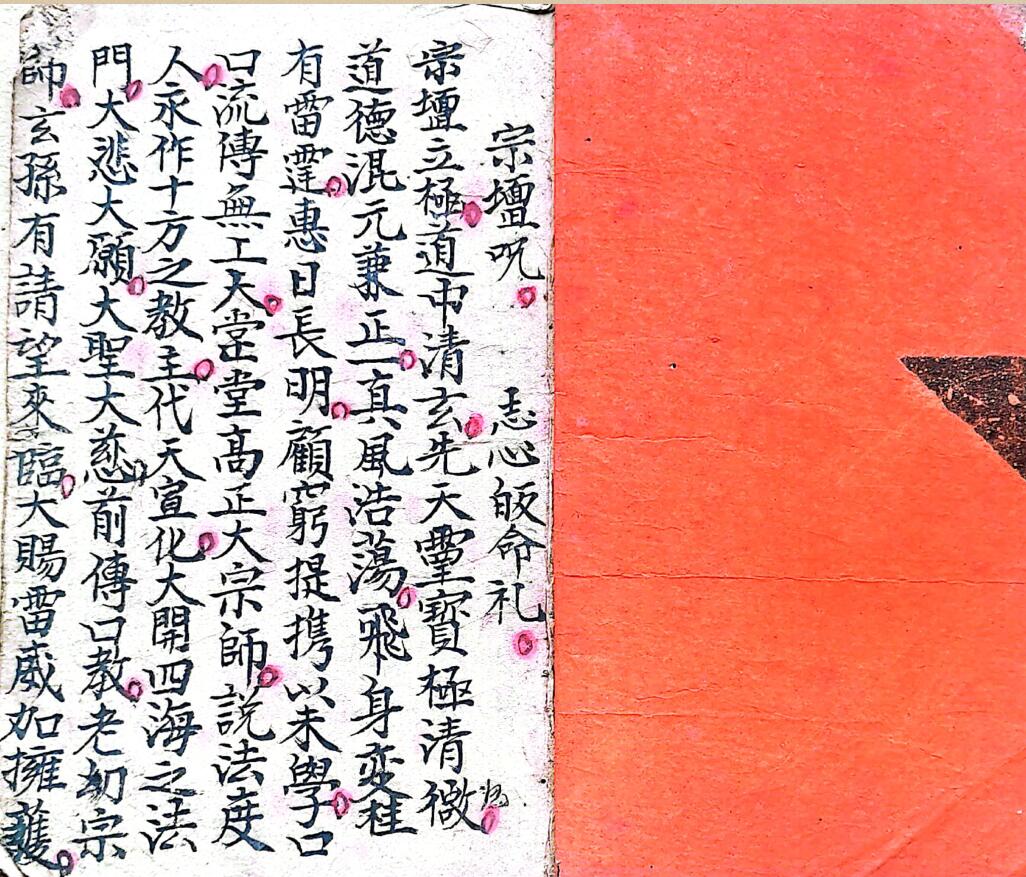 宗壇呪 志心皈命礼
宗壇立極道中清玄先天靈寶極清微
道德混元兼正一真風浩蕩飛身変
有雷霆惠日長明顧窮提携以未學口
口流傳無工大堂堂高正大宗師説法度
人永作十方之教主代天宣化大開四海之法
門大悲大願大聖大慈前傳口教老幼宗
師玄孫有請望來臨大賜雷威加擁護